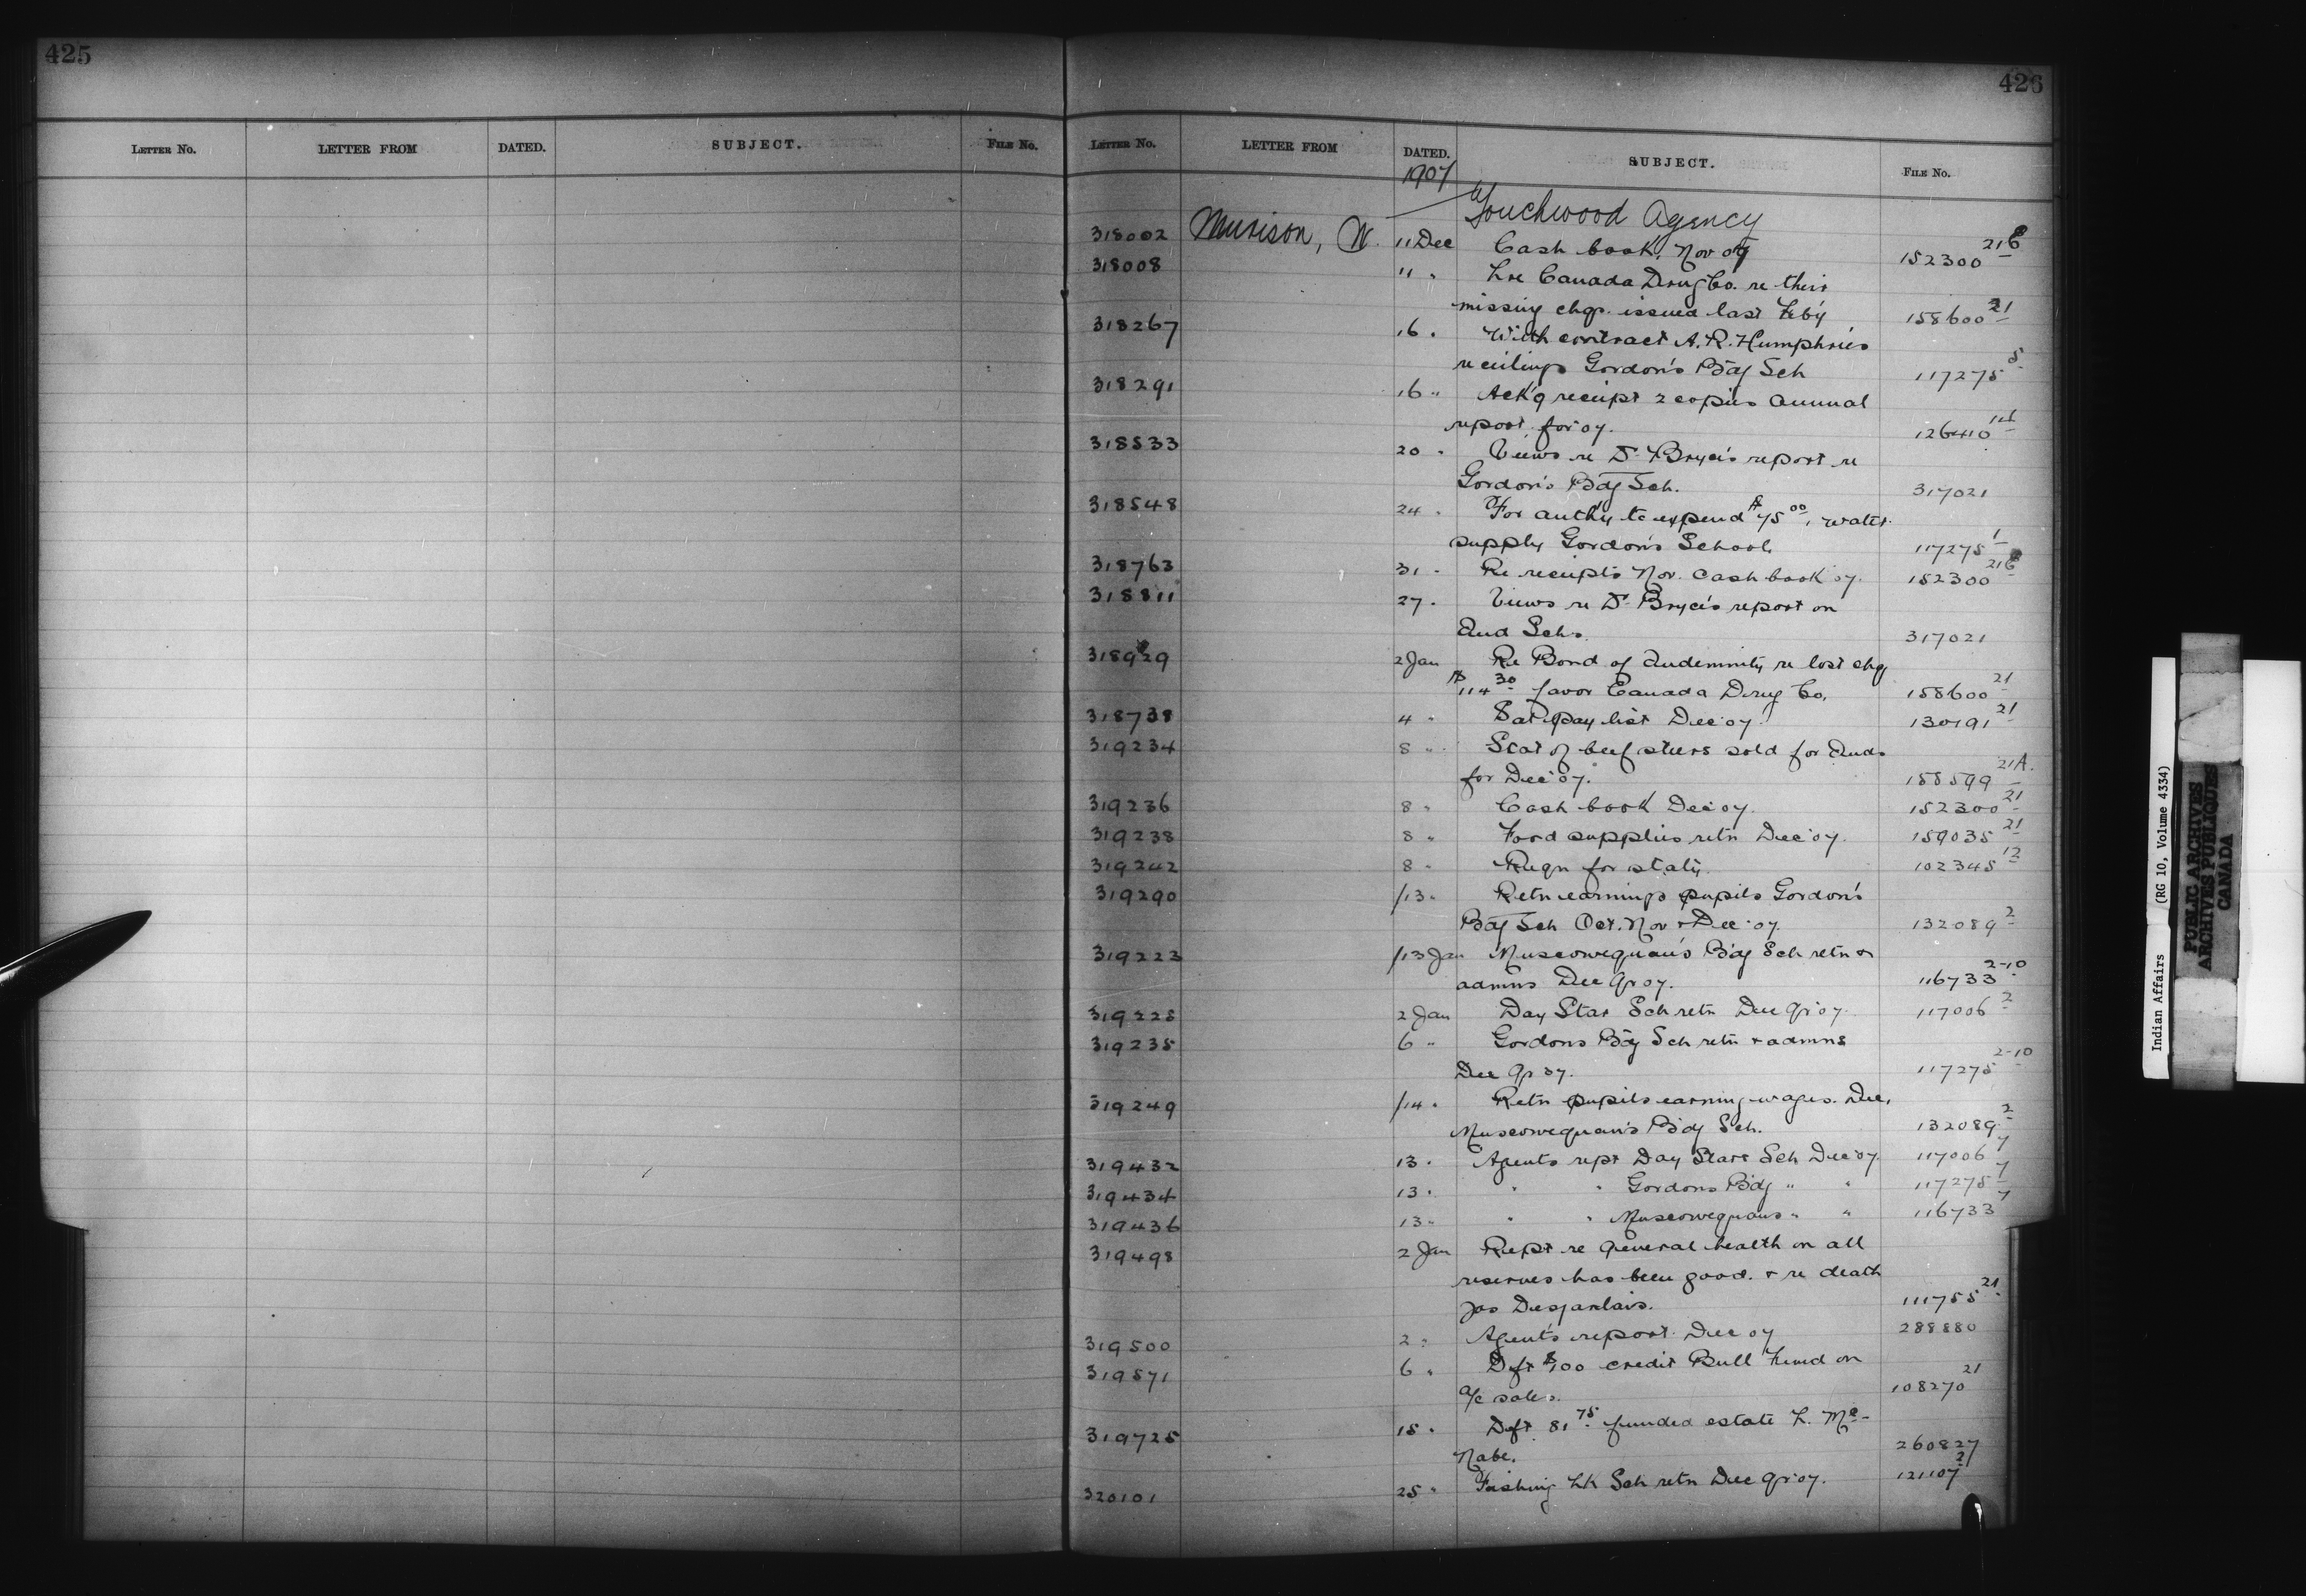 425
LETTER NO. LETTER FROM DATED. SUBJECT. FILE NO.
426
LETTER NO. LETTER FROM DATED. SUBJECT. FILE NO.
1907
Touchwood Agency
318002 Murison, W. 11 Dec Cash book, Nov 07 152300 21B
318008 11 " Lre Canada Drug Co. re their
missing chq. issued last Feb'y 158600 21
318267 16 " With contract A. R. Humphries
re ceilings Gordon's B'dg Sch 117275 5
318291 16 " Ack'g receipt 2 copies Annual
report for '07. 126410
318533 20 " Views re Dr Bryce's report re
Gordon's Bdg Sch. 317021
318548 24 " For auth'y to expend $75 00, water
supply Gordon's School 117275 1
318763 31 " Re receipts Nov. cash book 07. 152300 21B
318811 27 " Views re Dr Bryce's report on
Ind Schs. 317021
318929 2 Jan Re Bond of Indemnity re lost chq
$114 30 favor Canada Drug Co. 158600 21
318738 4 " Sat pay list Dec '07. 130191 21
319234 8 " Stat of beef steers sold for Inds
for Dec '07. 158599 21A.
319236 8 " Cash book Dec '07. 152300 21
319238 8 " Food supplies retn Dec '07. 159035 21
319242 8 " Reqn for stat'y. 102345 12
319290 /13 " Retn earnings pupils Gordon's
Bdg Sch Oct. Nov + Dec '07. 132089 2
319223 /13 Jan Muscowequan's B'dg Sch retn &
admns Dec Qr 07. 116733 2-10
319228 2 Jan Day Star Sch retn Dec Qr 07. 117006 2
319235 6 " Gordons Bdg Sch retn + admns
Dec Qr 07. 117275 2-10
319249 /14 " Retn pupils earning wages. Dec,
Muscowequan's Bdg Sch. 132089 2
319432 13 " Agents rept Day Stars Sch Dec '07. 117006 7
319434 13 " " " Gordons Bdg " " 117275 7
319436 13 " " " Muscowequans " " 116733 7
319498 2 Jan Rept re general health on all
reserves has been good. + re death
Jas Desjarlais. 111755 21
319500 2 " Agent's report Dec 07 288880
319571 6 " Dft $100 credit Bull Fund on
a/c sales. 108270 21
319725 15 " Dft 81 75 funded estate L. Mc-
Nabe. 260827
320101 25 " Fishing Lk Sch retn Dec Qr 07. 121107 2
Indian Affairs (RG 10, Volume 4334)
PUBLIC ARCHIVES
ARCHIVES PUBLIQUES
CANADA